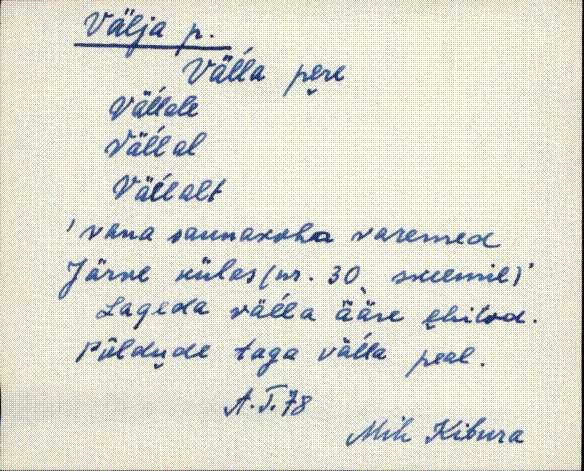 Välja p.
Väĺĺa pere
Väĺĺale
Väĺĺal
Väĺĺalt
'vana saunakoha varemed
Järve külas (nr. 30 skeemil)'
Lageda väĺĺa ääre ehitod.
Põldude taga väĺĺa peal.
A.T. 78
Mih Kibura